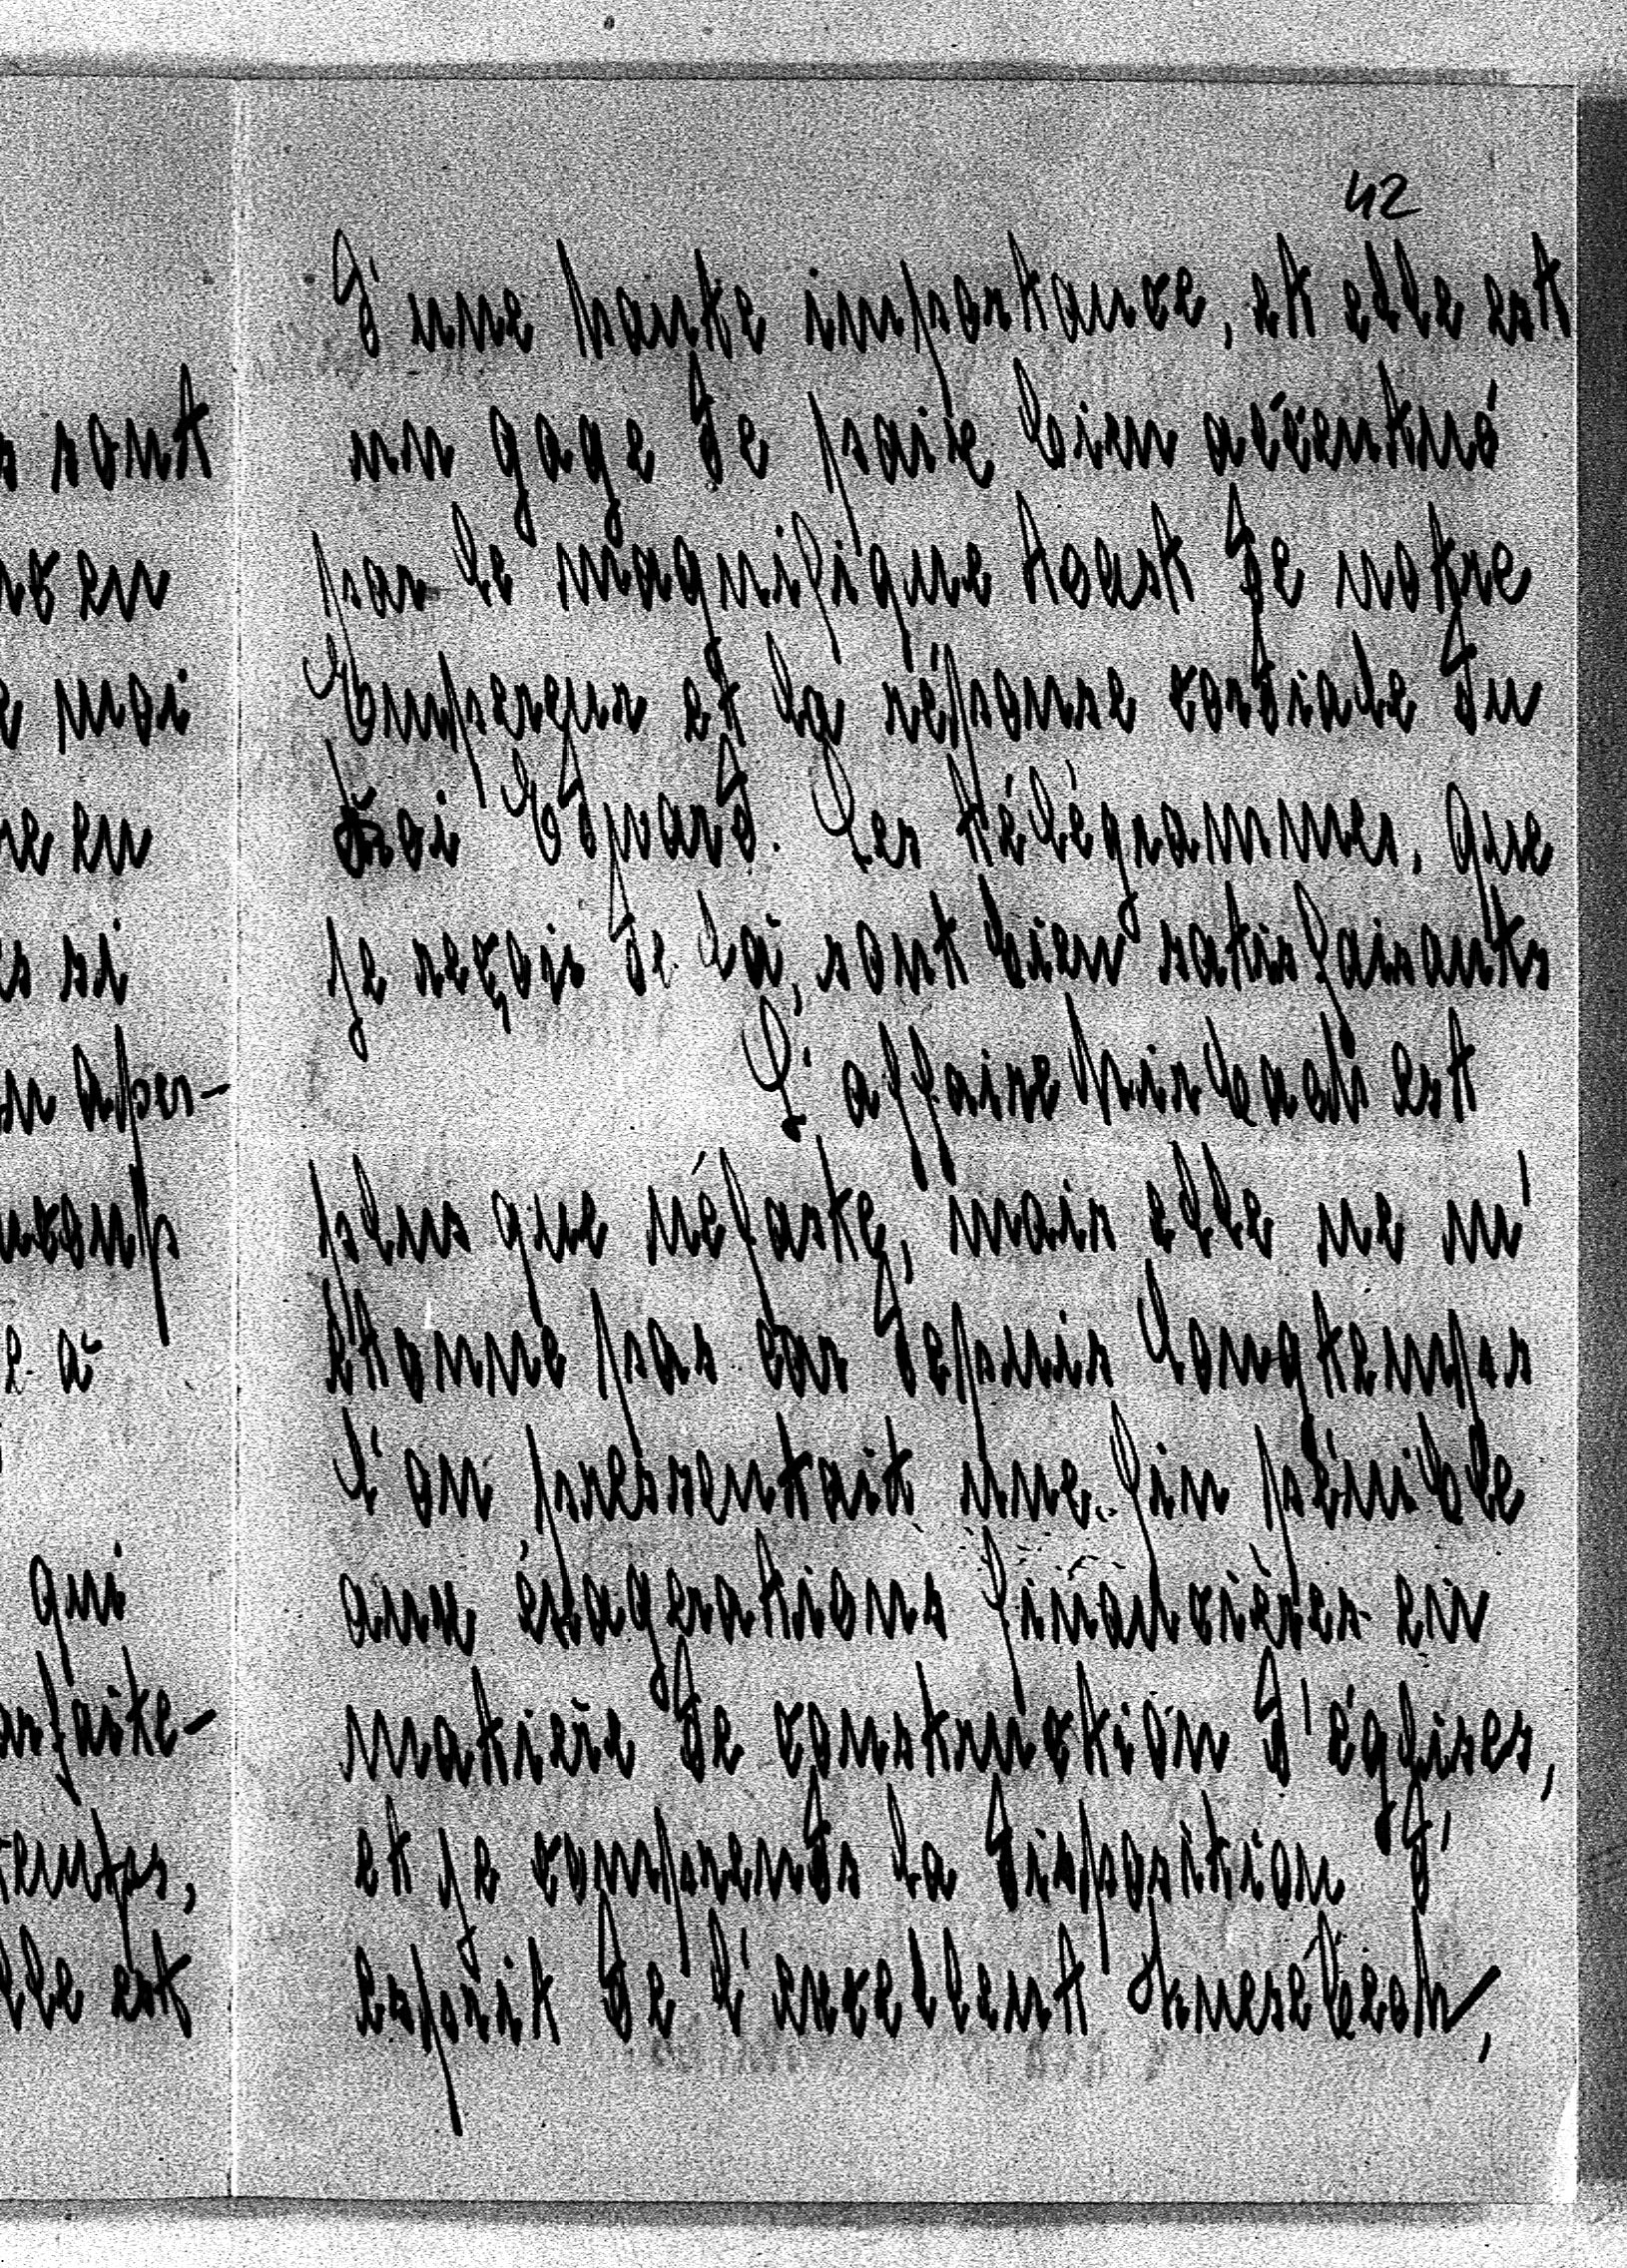 42
d'une haute importance, et elle est
un gage de paix bien accentué
par le magnifique toast de notre
Empereur et la réponse cordiale du
Roi Edouard. Les télégrammes, que
je reçois de là, sont bien satisfaisants
L'affaire Mirbach est
plus que néfaste, mais elle ne m'
étonne pas car depuis longtemps
l'on pressentait une fin pénible
aux éxagerations financières en
matière de construction d'églises,
et je comprends la disposition d'
esprit de l'excellent Knesebeck,
sont
en
moi
en
si
aper-
e à
qui
arfaite-
temps,
elle est